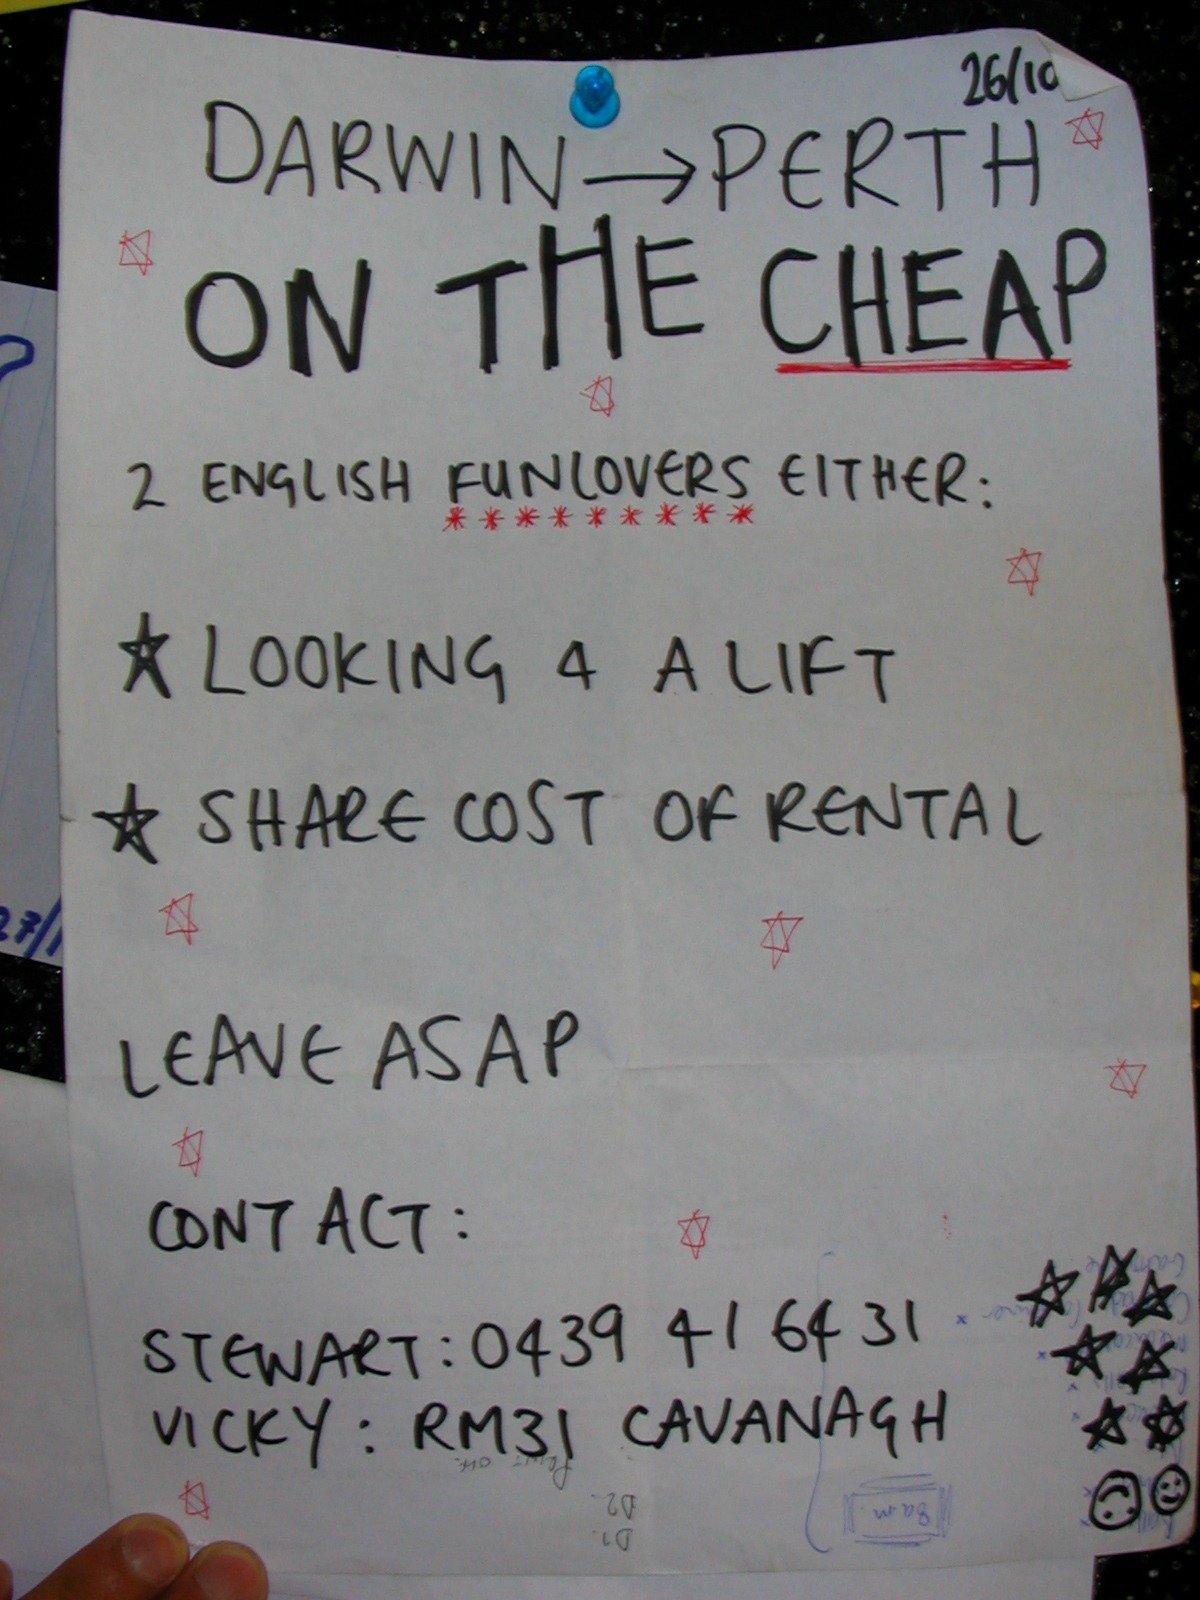 26/10
DARWIN → PERTH
ON THE CHEAP
2 ENGLISH FUNLOVERS EITHER:
LOOKING 4 A LIFT
SHARE COST OF RENTAL
27/1
LEAVE ASAP
CONTACT:
STEWART: 0439 41 64 31
VICKY: RM31 CAVANAGH
D2.
D1.
8am.